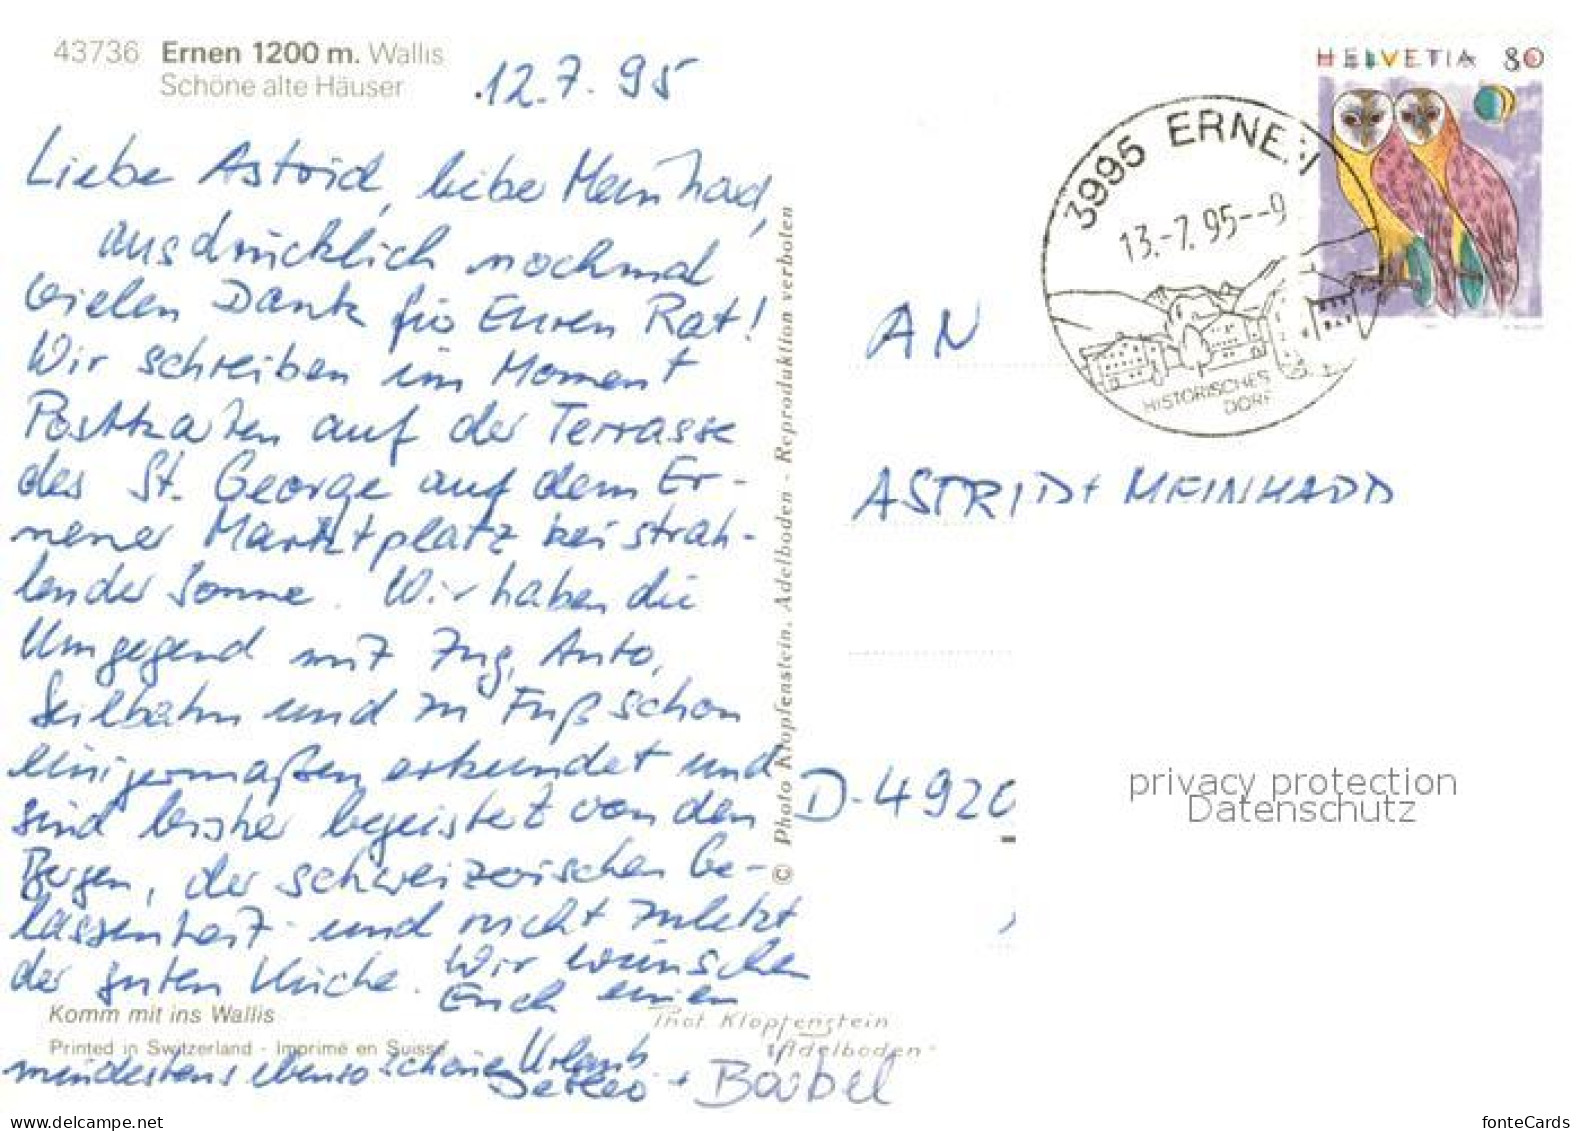 43736 Ernen 1200 m. Wallis
Schöne alte Häuser
12.7.95
Liebe Astrid, liebe Meinhad,
ausdrücklich nochmal
vielen Dank für Euren Rat!
Wir schreiben im Moment
Postkarten auf der Terrasse
des St. George auf dem Er-
nener Marktplatz bei strah-
lender Sonne. Wir haben die
Umgegend mit Zug, Auto,
Seilbahn und zu Fuß schon
einigermaßen erkundet und
sind bisher begeistert von den
Bergen, der schweizerischen Ge-
lassenheit und nicht zuletzt
der guten Küche. Wir wünschen
Euch einen
mindestens ebenso schönen Urlaub
Detlev + Bärbel
Komm mit ins Wallis
Printed in Switzerland - Imprimé en Suisse
Phot. Klopfenstein
Adelboden
© Photo Klopfenstein, Adelboden - Reproduktion verboten
HELVETIA 80
3995 ERNEN
13.-7.95--9
HISTORISCHES
DORF
AN
ASTRID + MEINHADD
D-4920
privacy protection
Datenschutz
fonteCards